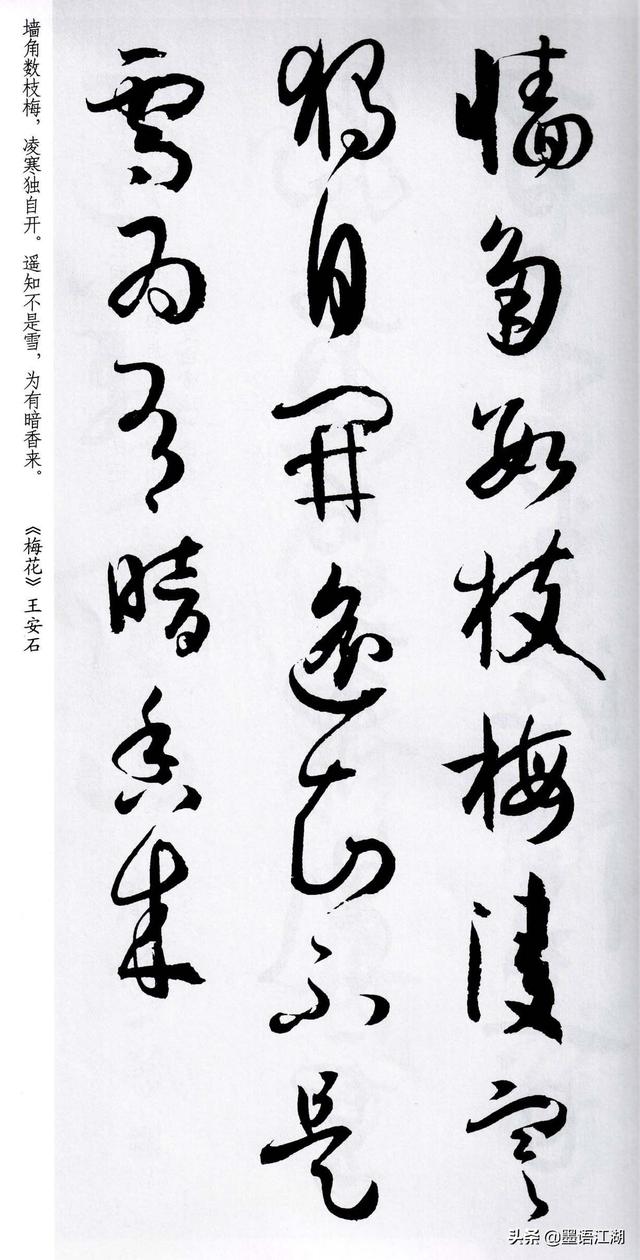 墙角数枝梅凌寒
独自开遥知不是
雪为有暗香来
墙角数枝梅，凌寒独自开。遥知不是雪，为有暗香来。
《梅花》王安石
头条 @墨语江湖